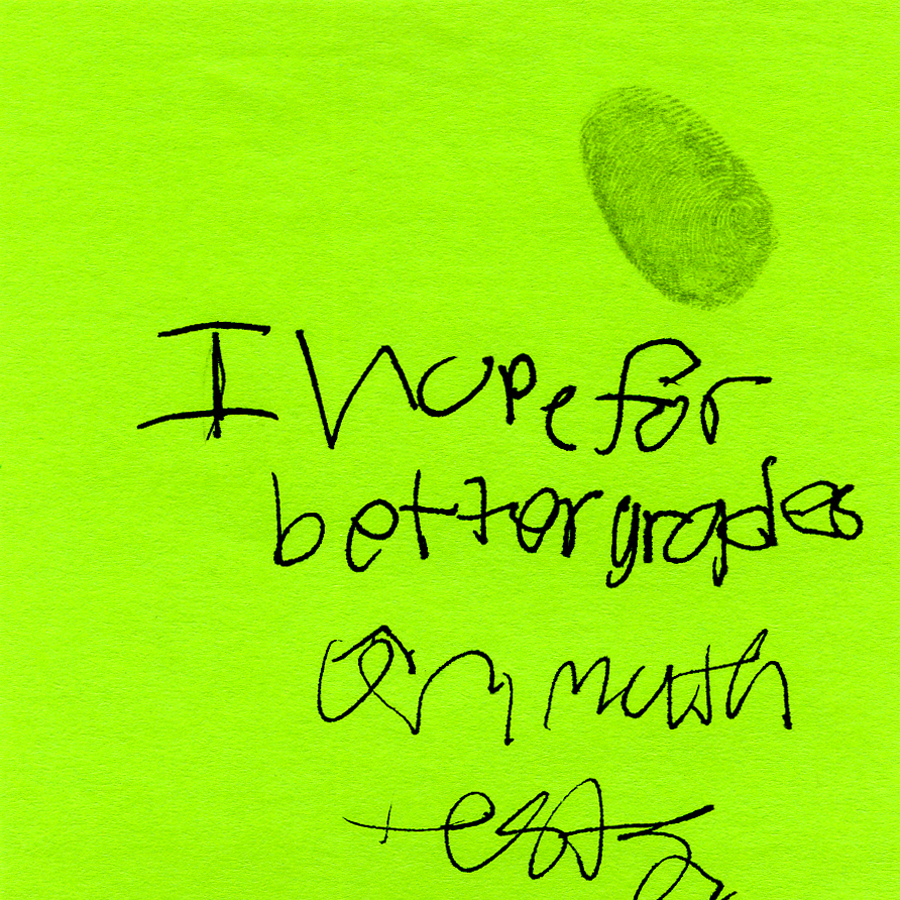 I hope for
better grades
on math
tests